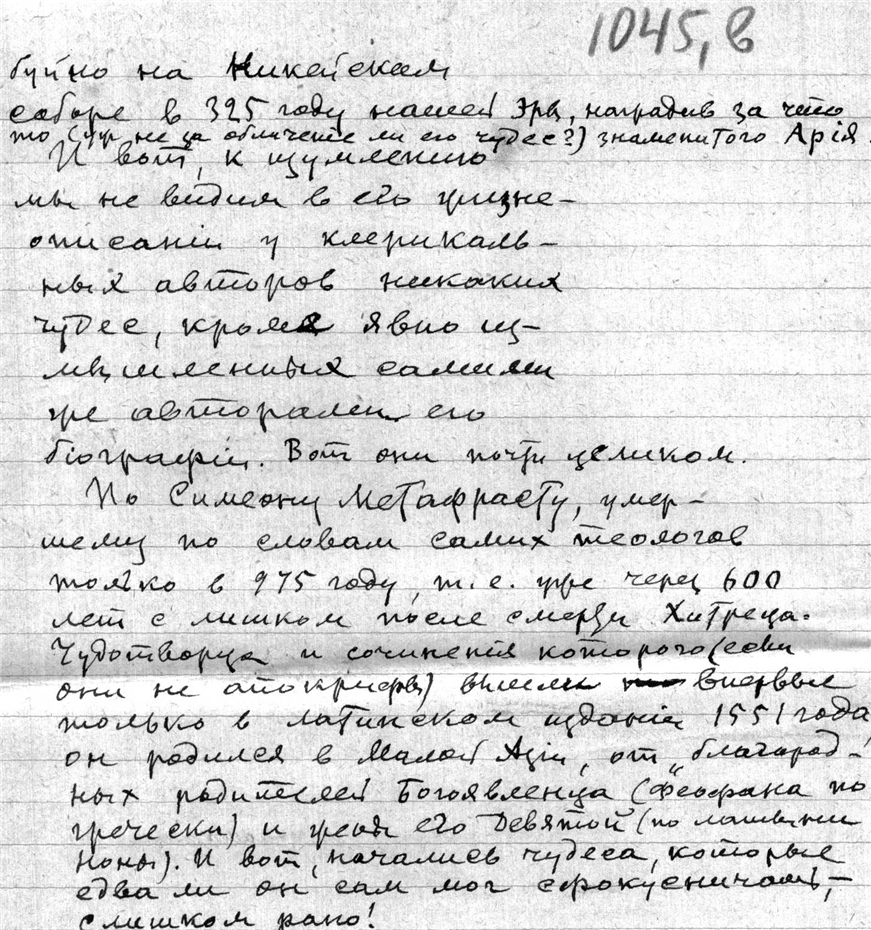 1045, в
буйно на Никейском
соборе в 325 году нашей эры, наградив за что
то (уж не за обличение ли его чудес?) знаменитого Арія.
И вот, к изумлению
мы не видим в его жизне-
описаніи у клерикаль-
ных авторов никаких
чудес, кроме явно из-
мышленных самими
же авторами его
біографіи. Вот они почти целиком.
По Симеону Метафрасту, умер-
шему по словам самих теологов
только в 975 году, т. е. уже через 600
лет с лишком после смерти Хитреца-
Чудотворца и сочинения которого (если
они не апокрифы) вышли впервые
только в латинском изданіи 1551 года,
он родился в Малой Азіи, от „благород-
ных родителей Богоявленца (Феофана по
гречески) и жены его Девятой (по латыни
Ноны). И вот, начались чудеса, которые
едва ли он сам мог сфокусничать,—
слишком рано!